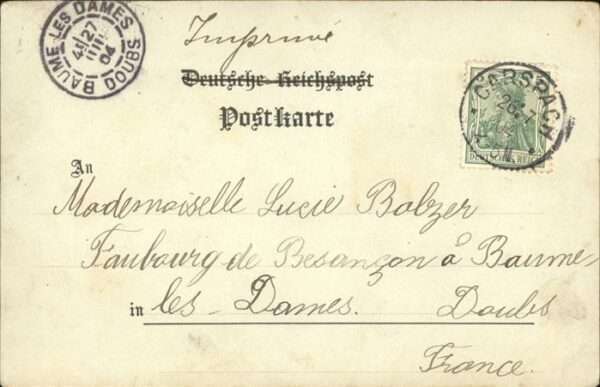 BAUME LES DAMES DOUBS
27
04
Imprimé
Deutsche Reichspost
Postkarte
CARSPACH
DEUTSCHES REICH
An
Mademoiselle Lucie Balzer
Faubourg de Besançon à Baume-
in les - Dames. Doubs
France.